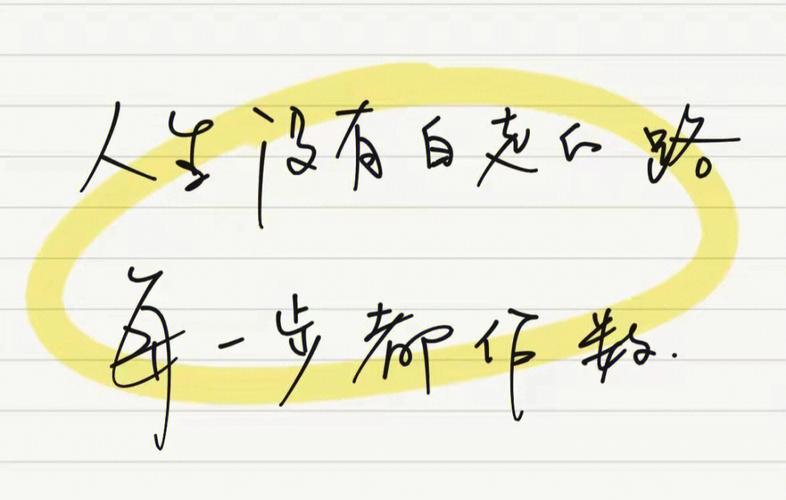 人生没有白走的路
每一步都作数.